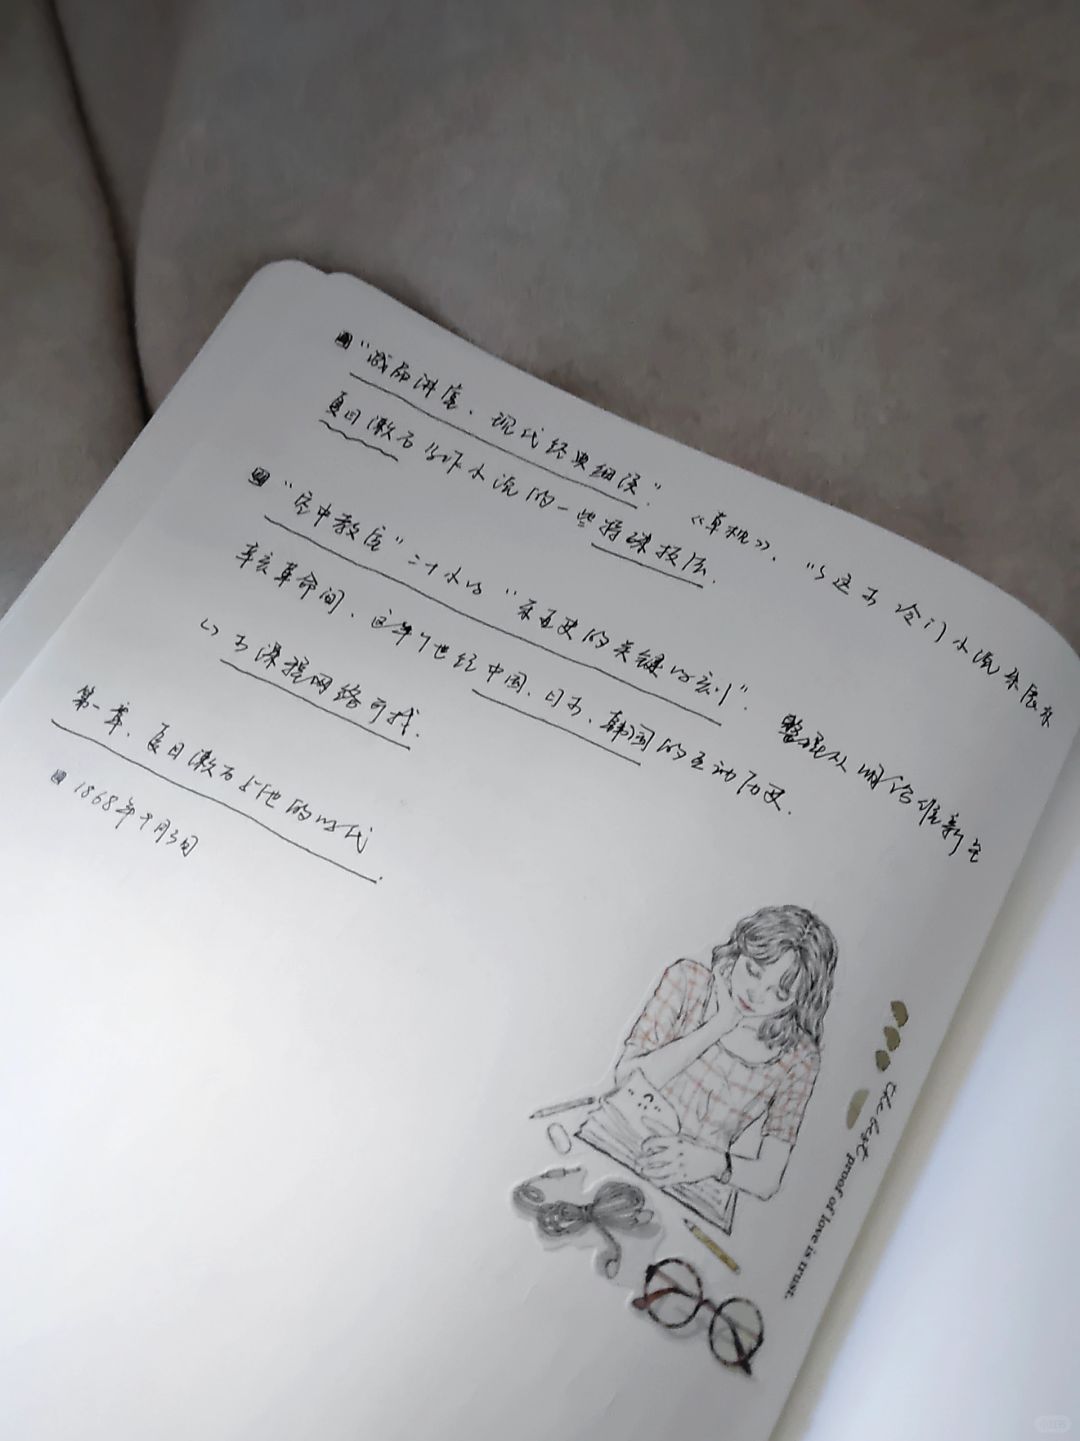 "诚品讲座、现代经典细读". 《草枕》. 以这本冷门小说来展示
夏目漱石写作小说的一些特殊技法.
"空中教室"二十小时"东亚史的关键时刻". 整理从明治维新至
辛亥革命间、这半个世纪中国、日本、韩国的互动历史.
↳本课程网络可找.
第一章、夏目漱石与他的时代
1868年9月3旬
the best proof of love is trust.